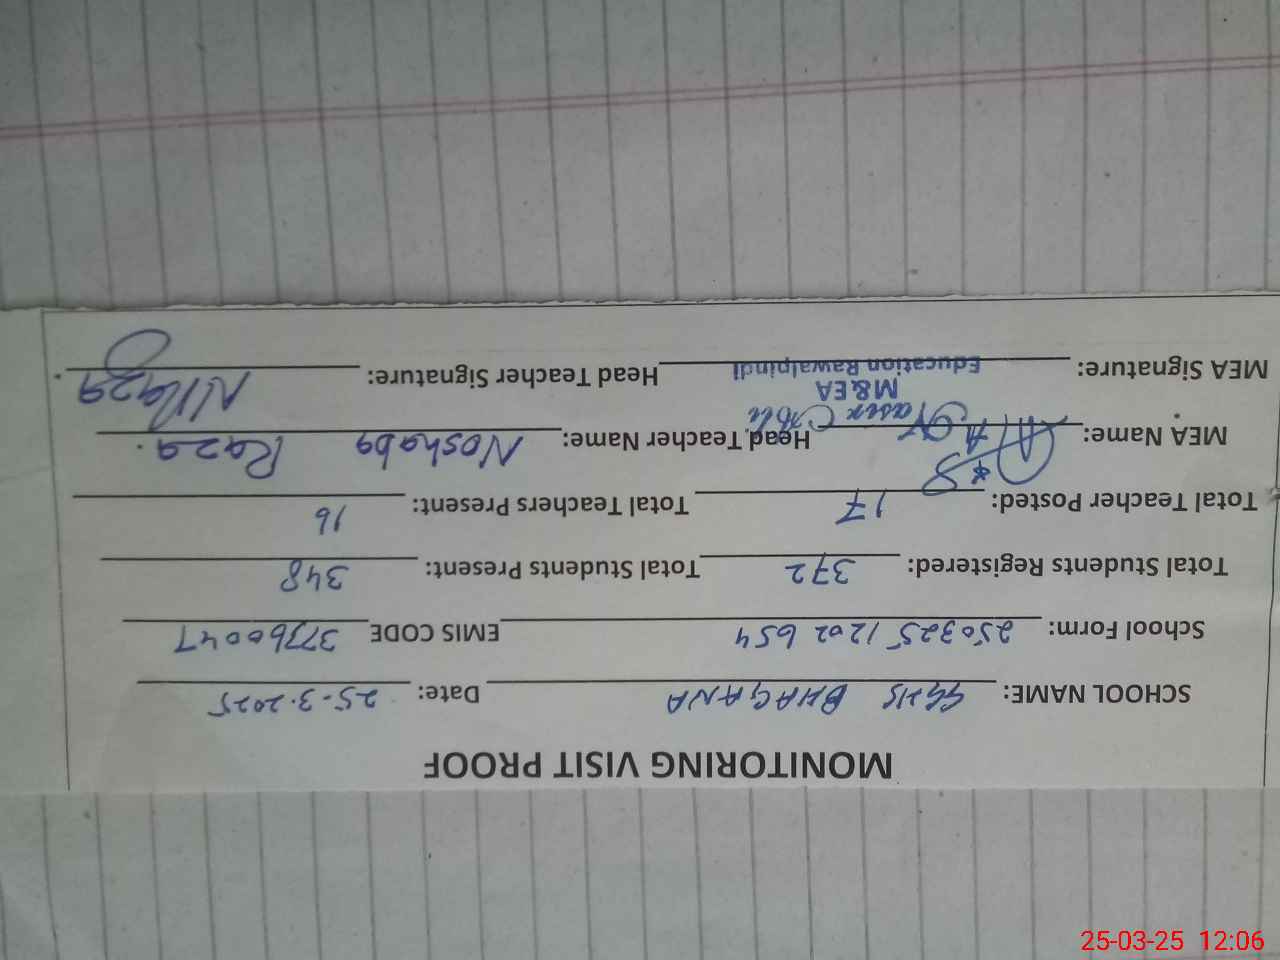 MONITORING VISIT PROOF
SCHOOL NAME: GGHS BHAGANA Date: 25-3-2025
School Form: 250325 1202 654 EMIS CODE 37360047
Total Students Registered: 372 Total Students Present: 348
Total Teacher Posted: 17 Total Teachers Present: 16
MEA Name: Head Teacher Name: Noshaba Raza.
M&EA
MEA Signature: Education Rawalpindi Head Teacher Signature: N.Raza
25-03-25 12:06